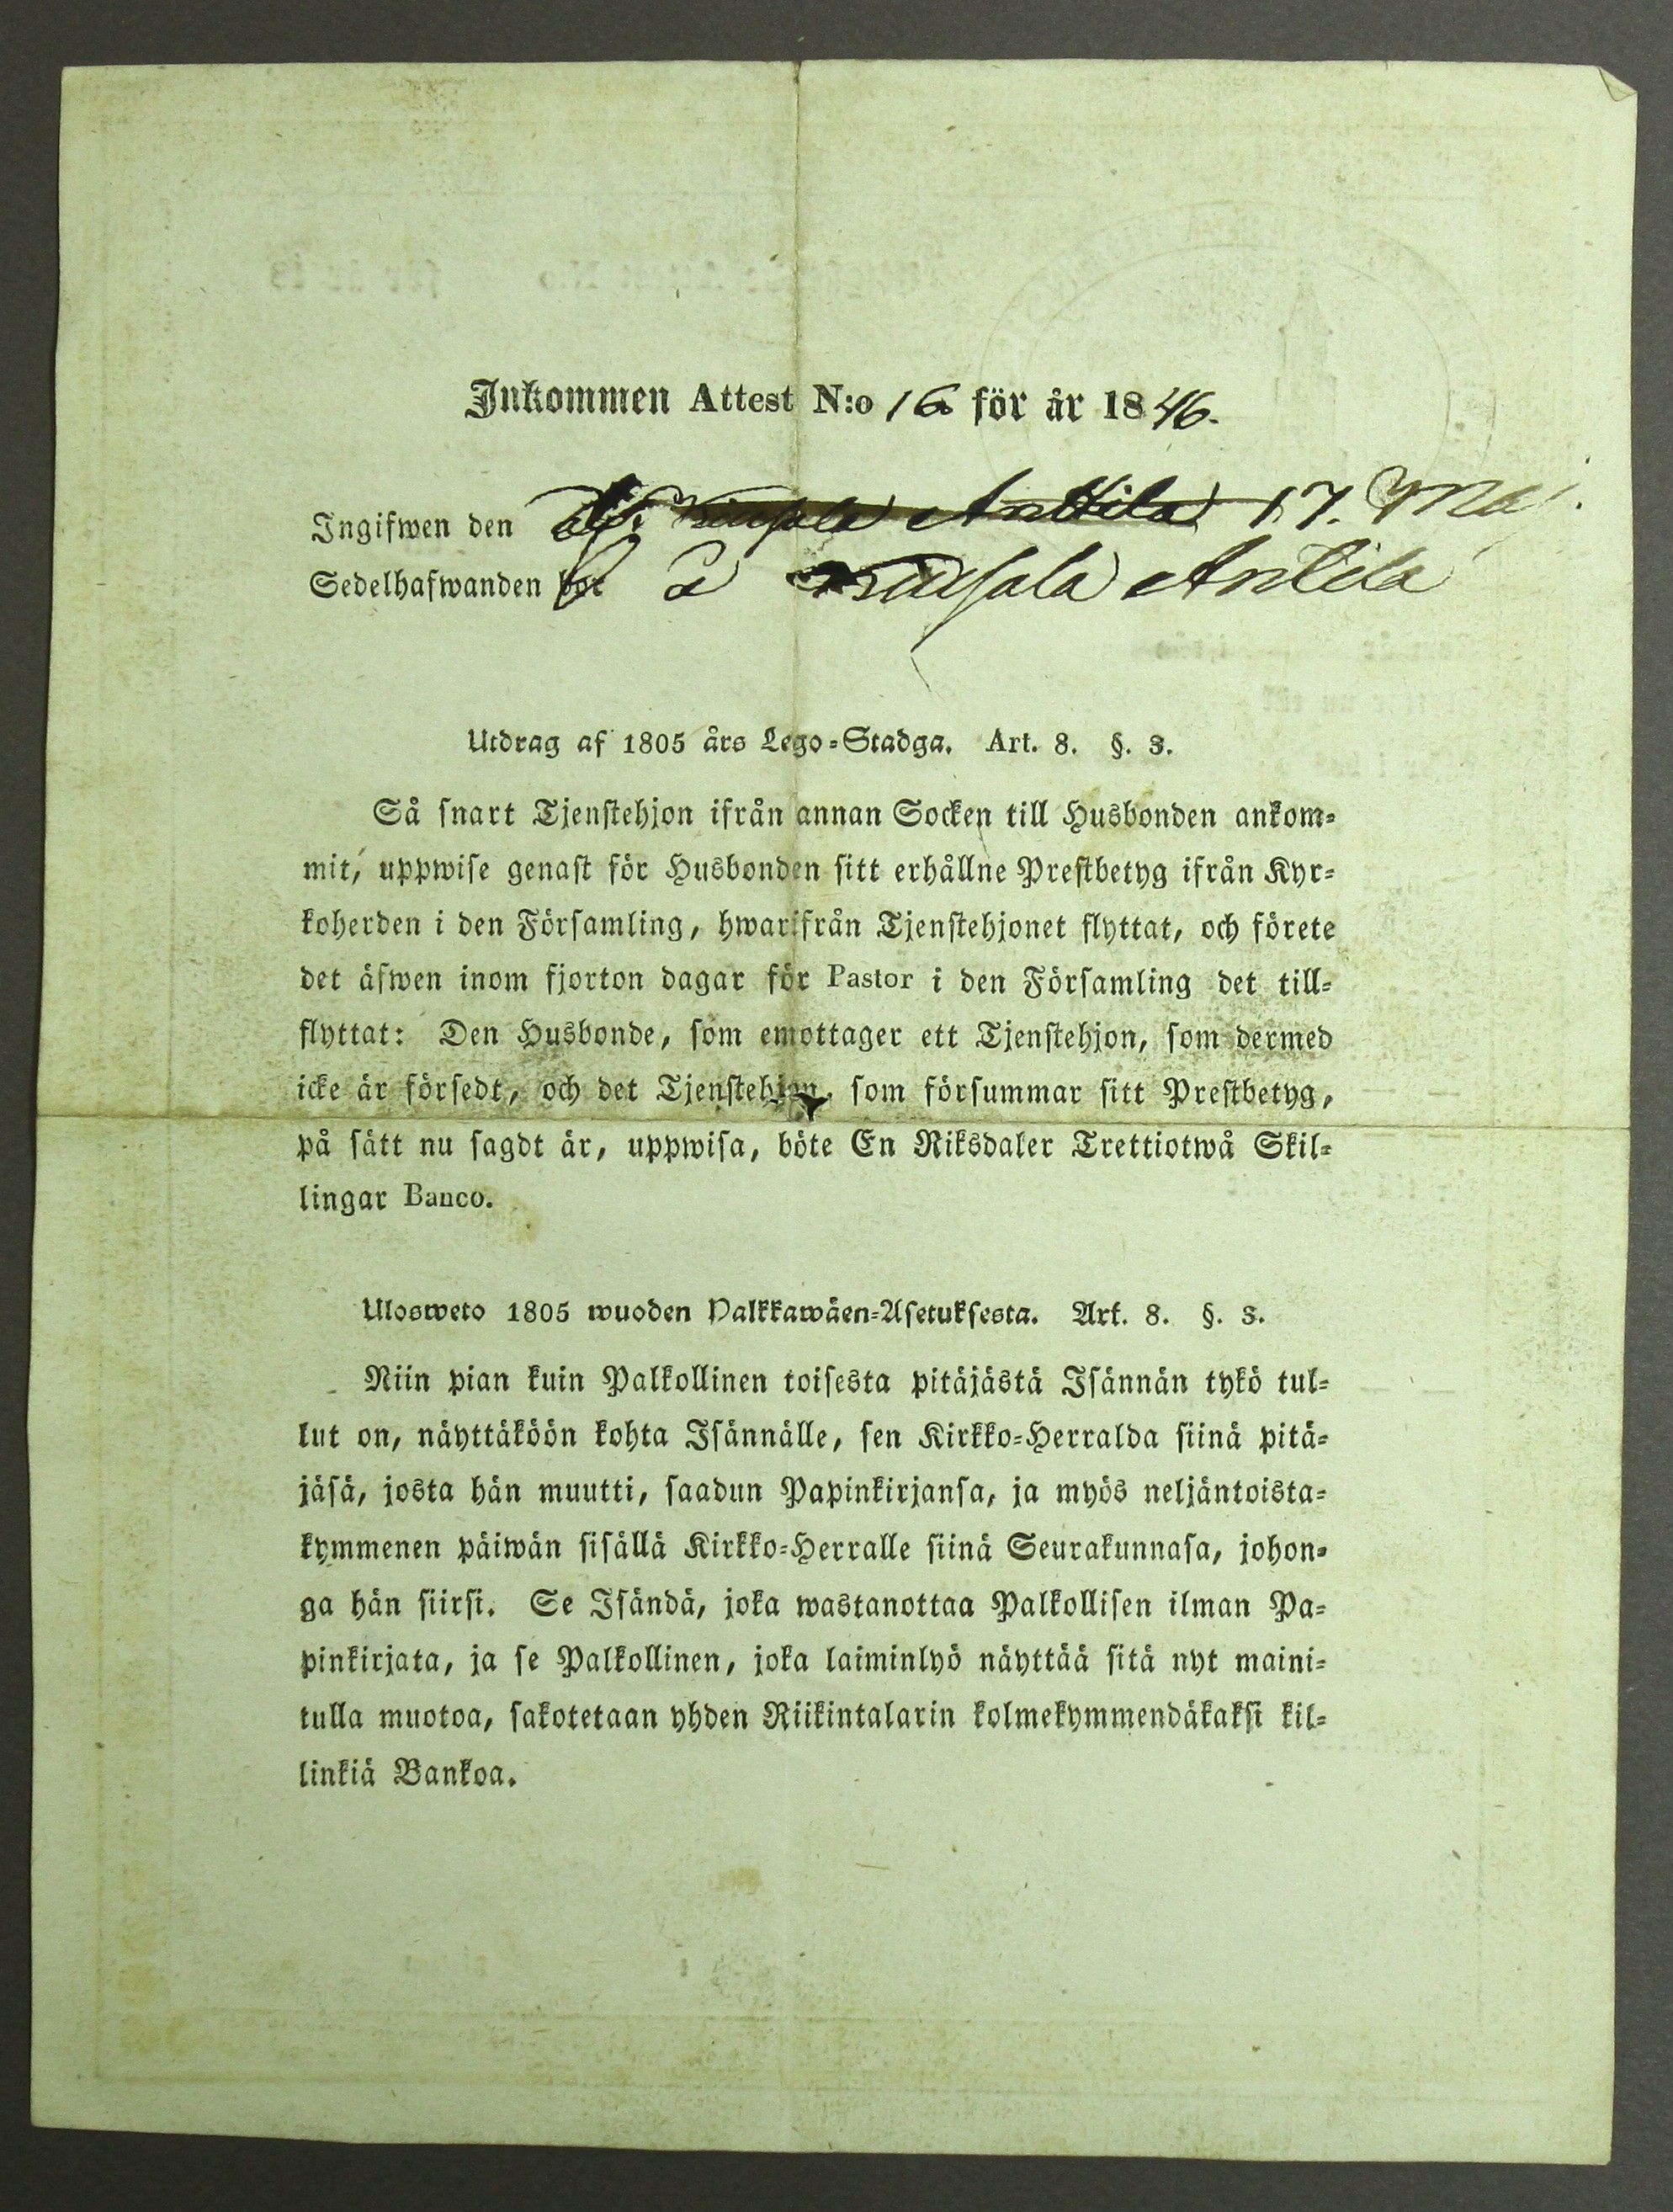 Inkommen Attest N:o 16 för år 1846.
Ingifwen den Anttila 17. Maj.
Sedelhafwanden bor å Antila
Utdrag af 1805 års Lego-Stadga. Art. 8. §. 3.
Så snart Tjenstehjon ifrån annan Socken till Husbonden ankom-
mit, uppwise genast för Husbonden sitt erhållne Prestbetyg ifrån Kyr-
koherden i den Församling, hwarifrån Tjenstehjonet flyttat, och förete
det äfwen inom fjorton dagar för Pastor i den Församling det till-
flyttat: Den Husbonde, som emottager ett Tjenstehjon, som dermed
icke är försedt, och det Tjenstehjon, som försummar sitt Prestbetyg,
på sätt nu sagdt är, uppwisa, böte En Riksdaler Trettiotwå Skil-
lingar Banco.
Ulosweto 1805 wuoden Palkkawäen-Asetuksesta. Art. 8. §. 3.
Niin pian kuin Palkollinen toisesta pitäjästä Isännän tykö tul-
lut on, näyttäköön kohta Isännälle, sen Kirkko-Herralda siinä pitä-
jäsä, josta hän muutti, saadun Papinkirjansa, ja myös neljäntoista-
kymmenen päiwän sisällä Kirkko-Herralle siinä Seurakunnasa, johon-
ga hän siirsi. Se Isändä, joka wastanottaa Palkollisen ilman Pa-
pinkirjata, ja se Palkollinen, joka laiminlyö näyttää sitä nyt maini-
tulla muotoa, sakotetaan yhden Riikintalarin kolmekymmendäkaksi kil-
linkiä Bankoa.